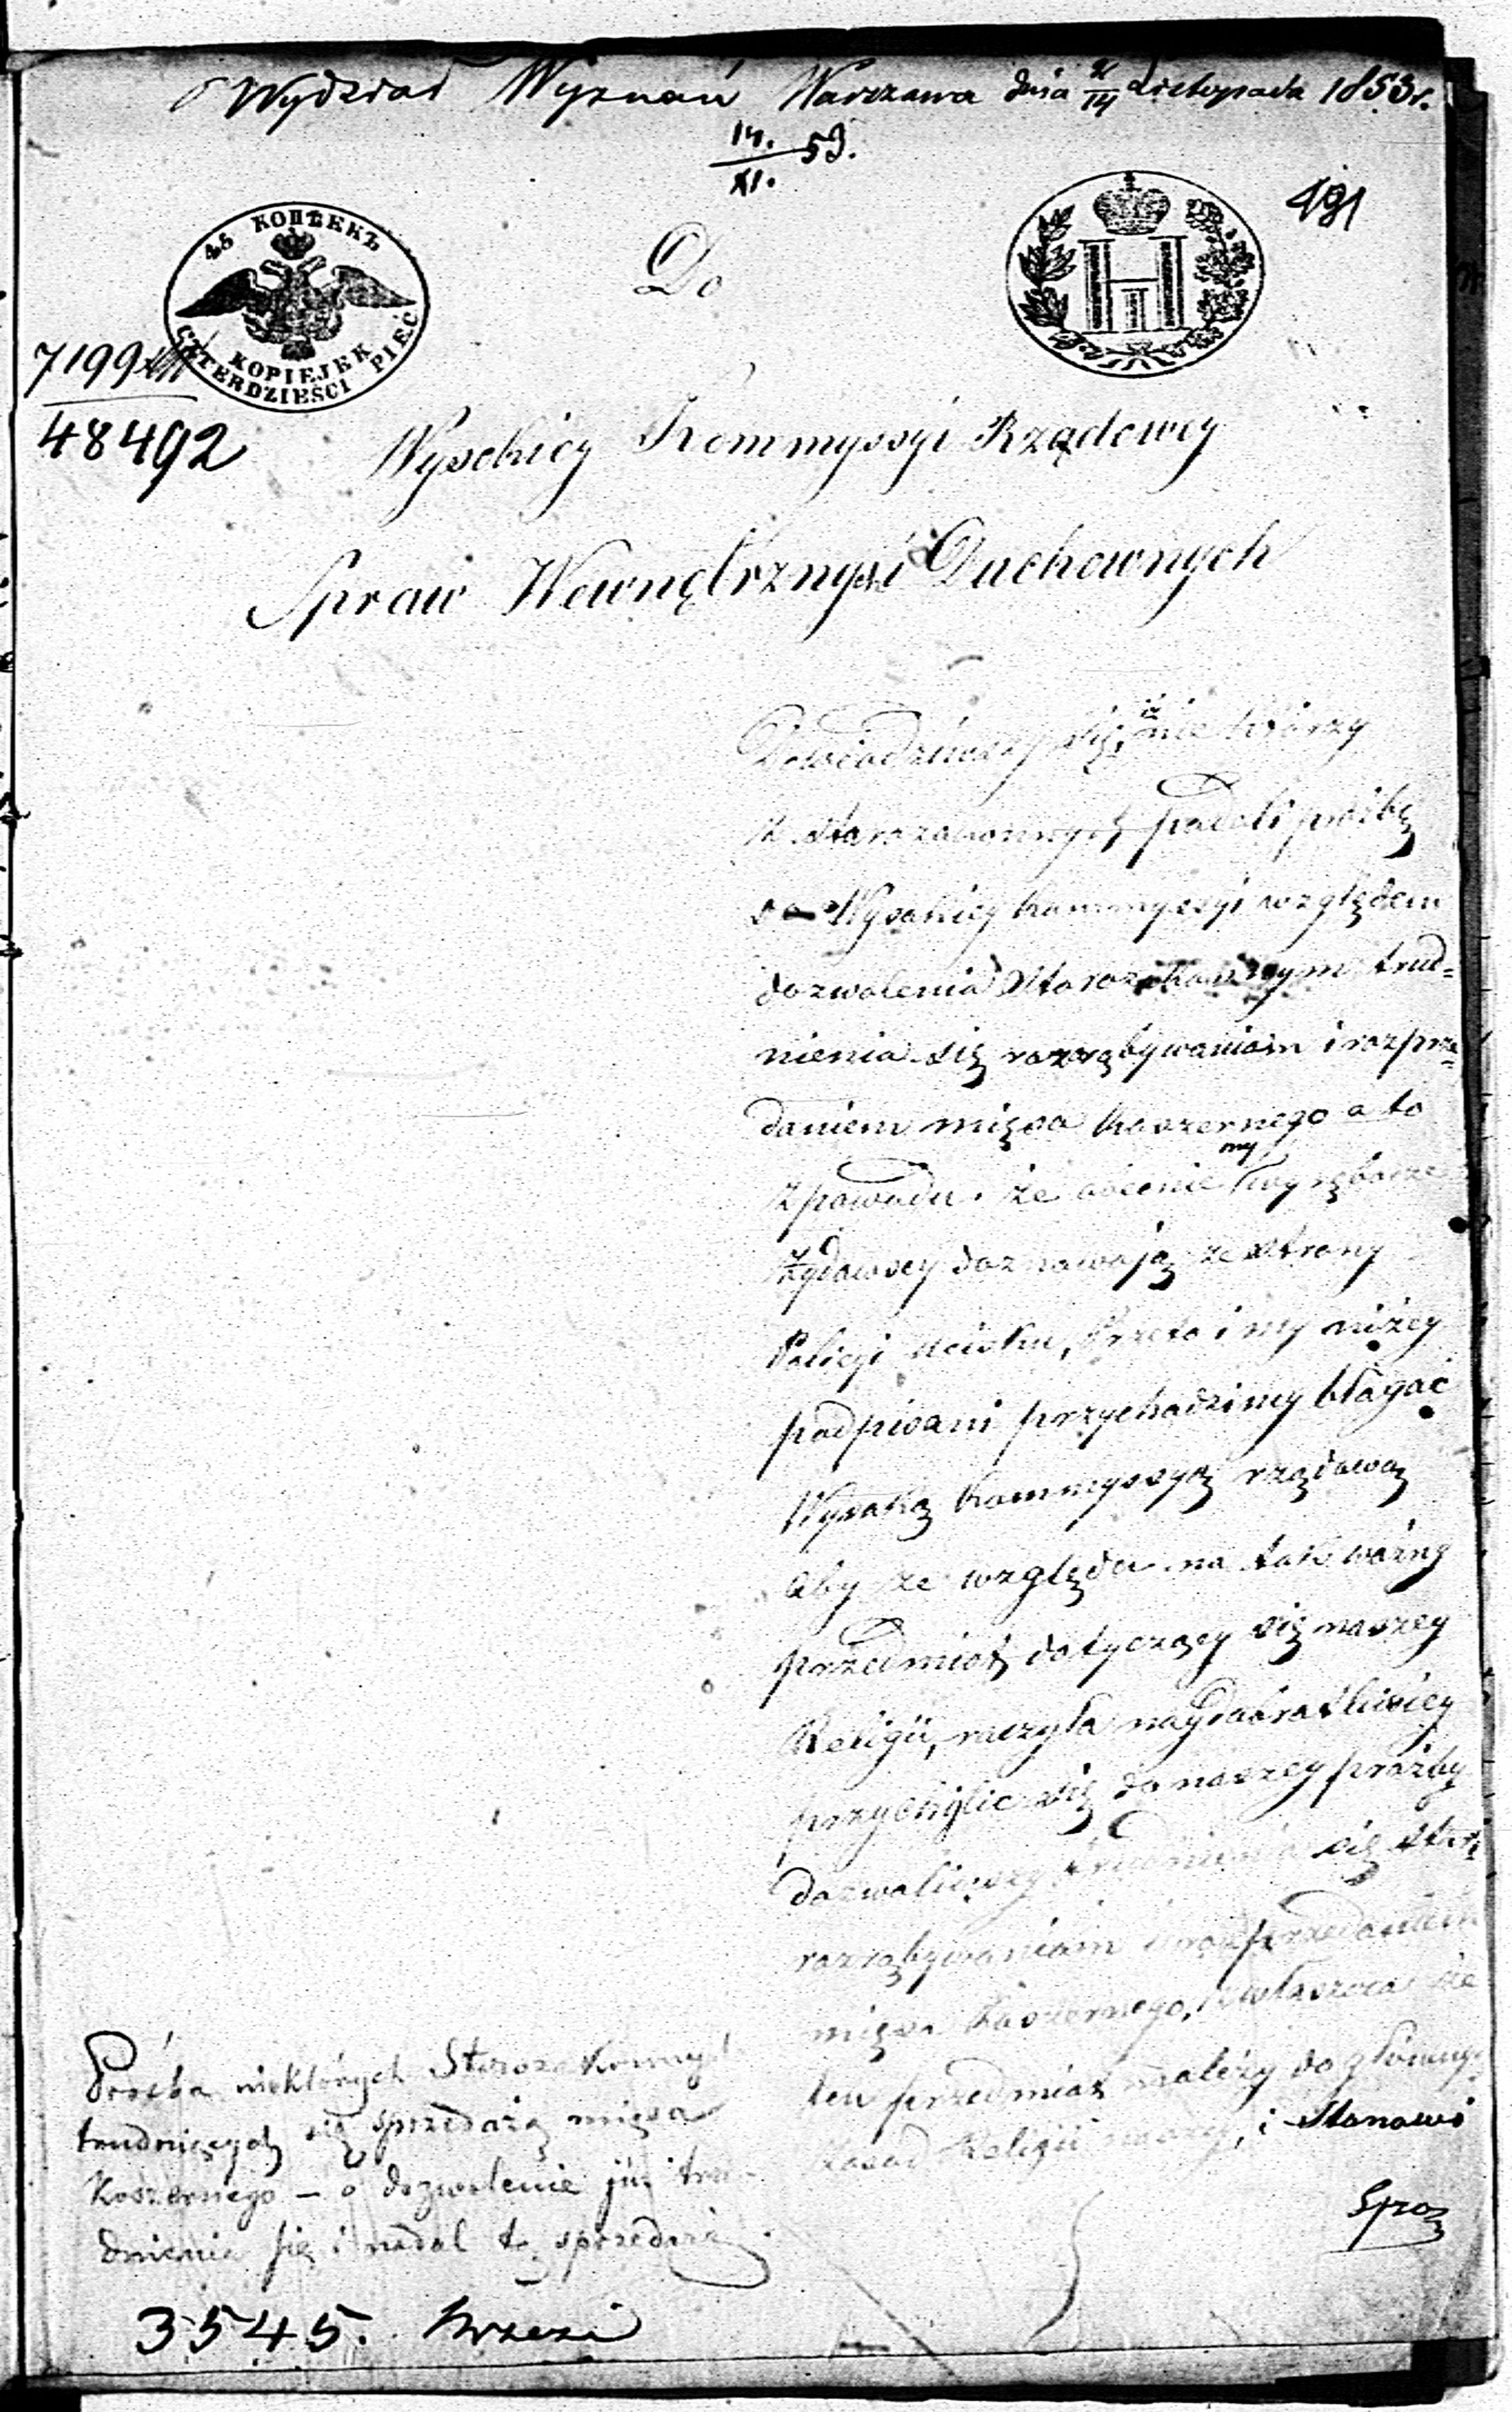 Wydział Wyznań Warszawa dnia 2/14 Listopada 1853 r.
14./XI. 53.
491
45 КОПѢЕКЪ
KOPIEJEK
CZTERDZIEŚCI PIĘĆ
Do
7199
48492
Wysokiey Kommyssyi Rządowey
Spraw Wewnętrznych i Duchownych
Dowiedziawszy się, iż nie którzy
z starozakonnych podali prożbę
do Wysokiey kommyssyi względem
dozwolenia Starozakonnym trud=
nienia się rozrąbywaniem i rozprze=
daniem mięsa koszernego a to
z powodu że obecnie my wyrębacze
Żydowscy doznawają ze strony
Policyi ucisku, Przeto i my niżey
podpisani przychodzimy błagać
Wysoką kommyssyą rządową
aby ze względu na tak ważny
przedmiot dotyczący się naszey
Religii, raczyła naydobrotliwiey
przychylic się do naszey prożby
dozwoliwszy trudnienia się
rozrąbywaniem i rozprzedaniem
mięsa koszernego, zwłaszcza że
ten przedmiot należy do głównych
zasad Religii naszey, i Stanowi
Sprze
Prośba niektórych Starozakonnych
trudniących się sprzedażą mięsa
Koszernego – o dozwolenie im tru
dnienia się i nadal tą sprzedażą.
3545.